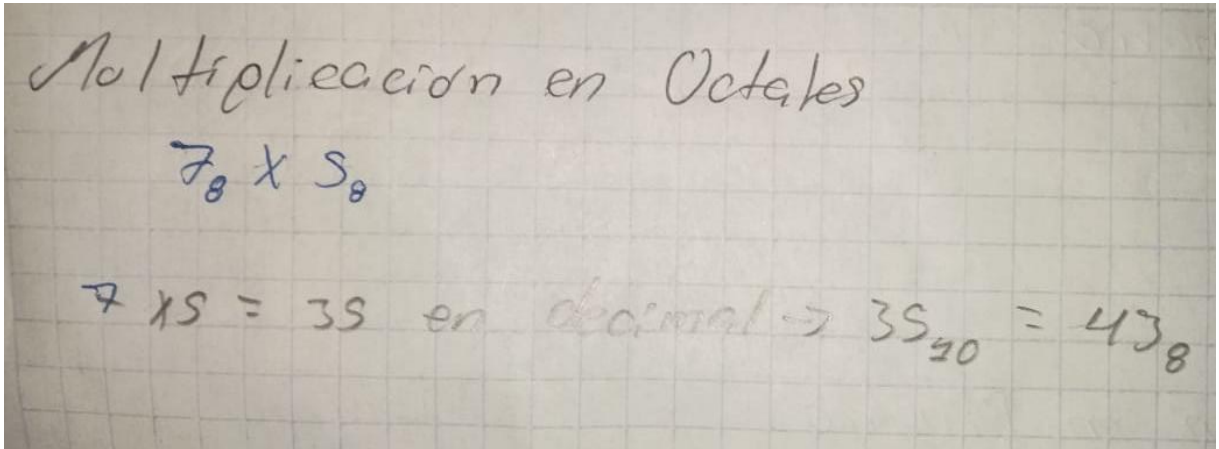 Multiplicación en Octales
7₈ x 5₈
7 x5 = 35 en decimal → 35₁₀ = 43₈